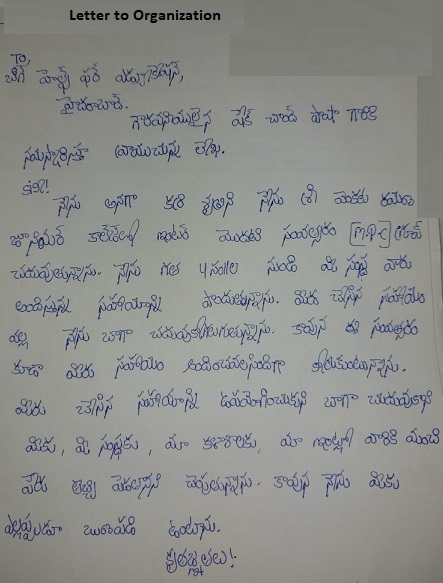 Letter to Organization
To,
బిగ్ హెల్ప్ ఫర్ ఎడ్యుకేషన్,
హైదరాబాద్.
గౌరవనీయులైన షేక్ చాంద్ పాషా గారికి
నమస్కారిస్తూ వ్రాయుచున్న లేఖ.
sir!
నేను అనగా కరి శ్రావణి నేను శ్రీ వెంకట రమణ
జూనియర్ కాలేజీలో ఇంటర్ మొదటి సంవత్సరం [M.P.C]
చదువుతున్నాను. నేను గత 4 సం॥ల నుండి మీ సంస్థ వారు
అందిస్తున్న సహాయాన్ని పొందుతున్నాను. మీరు చేసిన సహాయం
వల్ల నేను బాగా చదువుకోగలుగుతున్నాను. కావున ఈ సంవత్సరం
కూడా మీరు సహాయం అందించవలసిందిగా కోరుకుంటున్నాను.
మీరు చేసిన సహాయాన్ని ఉపయోగించుకుని బాగా చదువుకుని
మీకు, మీ సంస్థకు, మా కళాశాలకు, మా ఇంట్లో వారికి మంచి
పేరు తెచ్చి పెడతానని చెప్తున్నాను. కావున నేను మీకు
ఎల్లప్పుడూ ఋణపడి ఉంటాను.
కృతజ్ఞతలు!